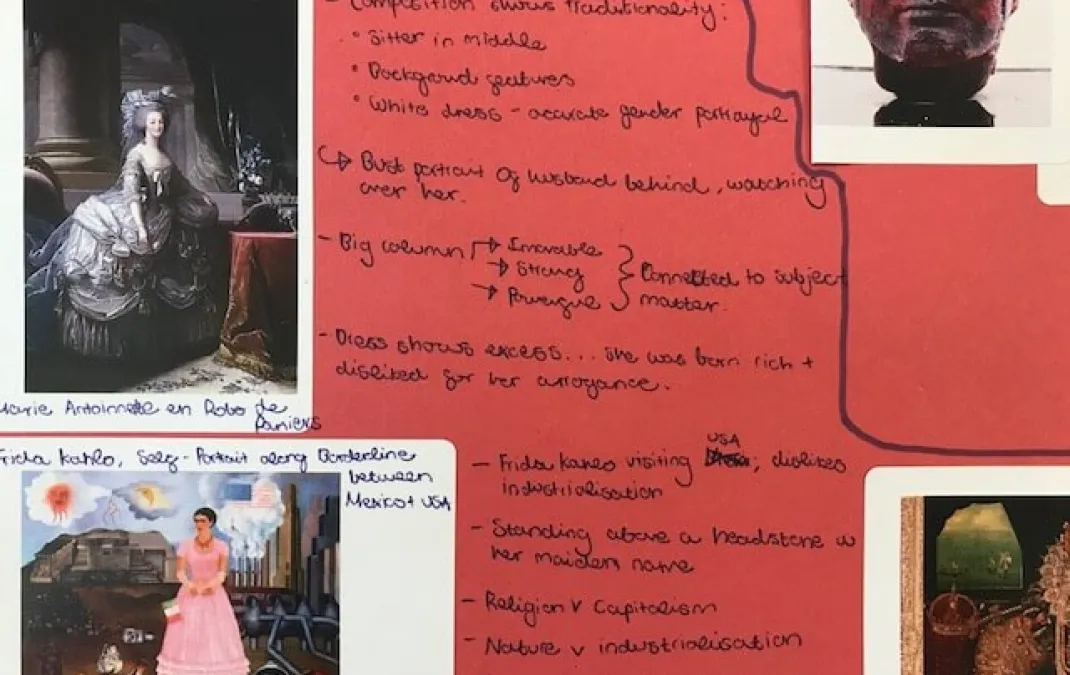 - Composition shows traditionality:
° Sitter in middle
° Background features
° White dress - accurate gender portrayal
↳ Bust portrait of husband behind, watching
over her.
- Big column → Immovable
→ Strong
→ Powerful
} Connected to subject
matter.
- Dress shows excess... she was born rich +
disliked for her arrogance.
Marie Antoinette en Robo de
Paniers
Frida Kahlo, Self-Portrait along Borderline
between
Mexico + USA
- Frida Kahlo visiting USA; dislikes
industrialisation
- Standing above a headstone w
her maiden name
- Religion v Capitalism
- Nature v industrialisation